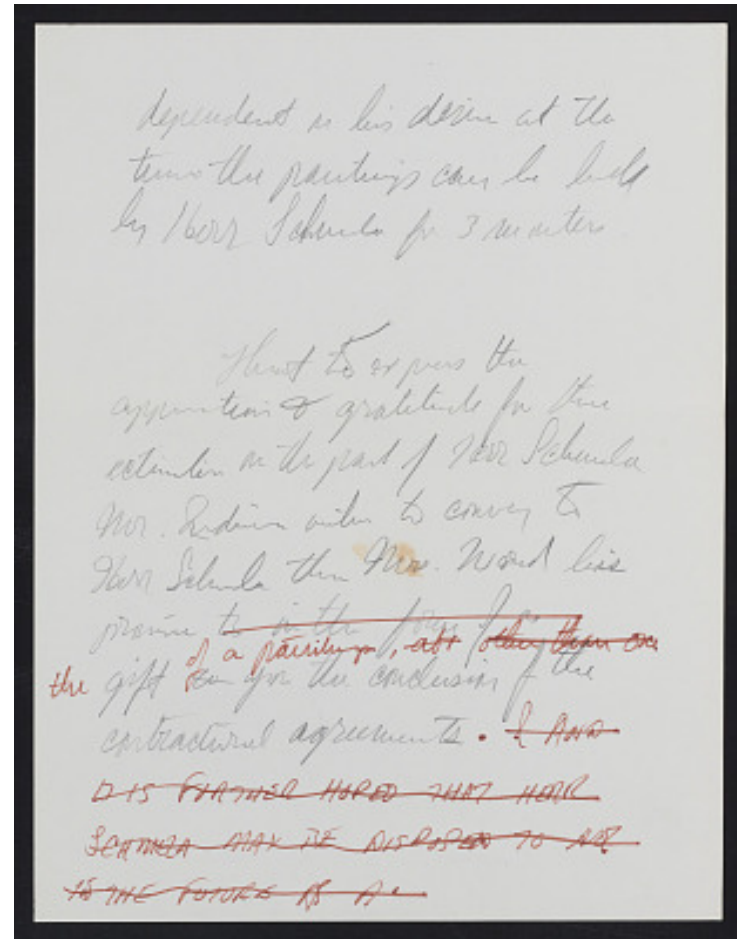 dependent on his desire at the
time the paintings can be held
by Herr Schmela for 3 months
Want to express the
appreciation & gratitude for the
on the part of Herr Schmela
Mr. Indiana wishes to convey to
Herr Schmela thru Mrs. Ward his
promise to in the form of
of a paintings, other than one
the gift for the conclusion of the
contractual agreements. & AND
IT IS FURTHER HOPED THAT HERR
SCHMELA MAY BE DISPOSED TO
IN THE FUTURE